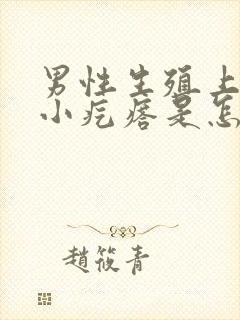 男性生殖上
小疙瘩是怎
趙筱青